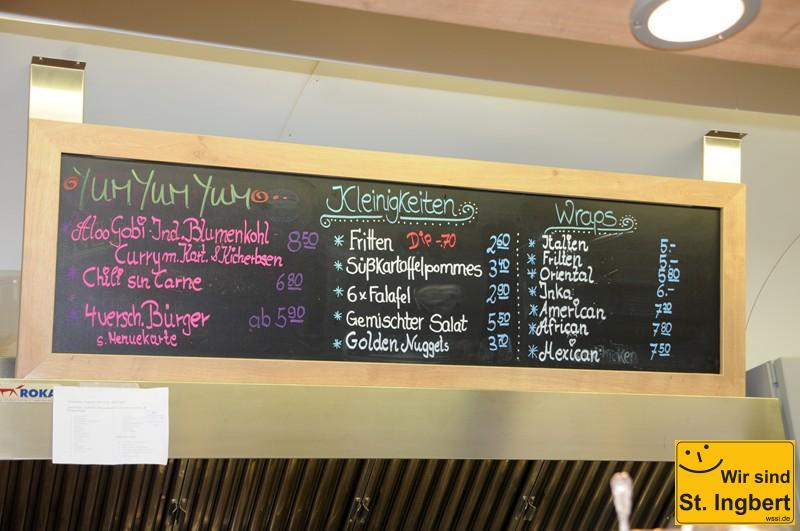 YUM YUM YUM
Aloo Gobi: Ind. Blumenkohl
Curry m. Kart. & Kicherbsen 8.50
Chili sin Carne 6.80
4 versch. Bürger ab 5.90
s. Menuekarte
Kleinigkeiten
* Fritten Dip -70 2.60
* Süßkartoffelpommes 3.40
* 6 x Falafel 2.90
* Gemischter Salat 5.50
* Golden Nuggets 3.70
Wraps
* Italien 5.-
* Fritten 5.-
* Oriental 5.80
* Inka 6.-
* American
* African 7.80
* Mexican 7.50
ROKA
Wir sind
St. Ingbert
wssi.de